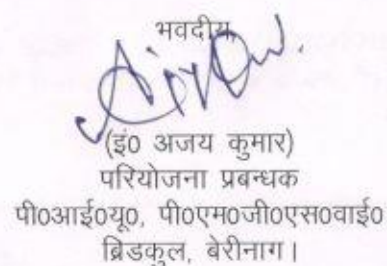 भवदीय,
(इं0 अजय कुमार)
परियोजना प्रबन्धक
पी0आई0यू0, पी0एम0जी0एस0वाई0
ब्रिडकुल, बेरीनाग।